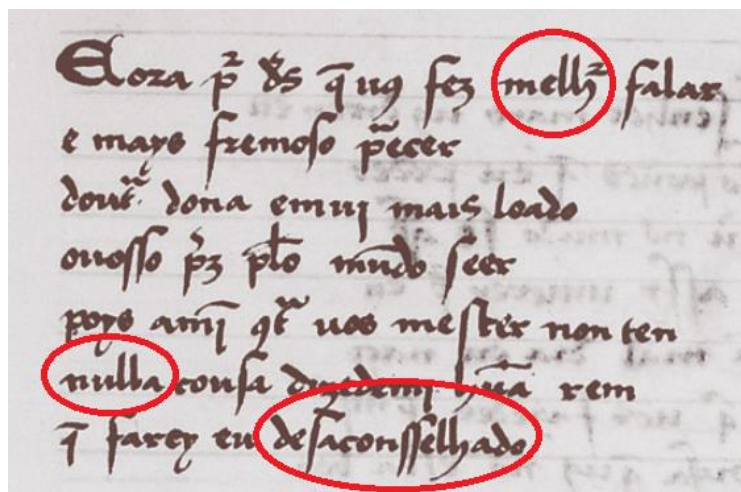 Eora pʳ d̄s q̄ uꝯ fez melhʳ falar
e mays fremoso p̄ecer
doutᵃ dona emui mais loado
ouosso p̄z plo mūdo seer
poys amī ꝯtᵃ uos mester non ten
nulla cousa dizedemi hūa rem
q̄ farey eu desaconsselhado